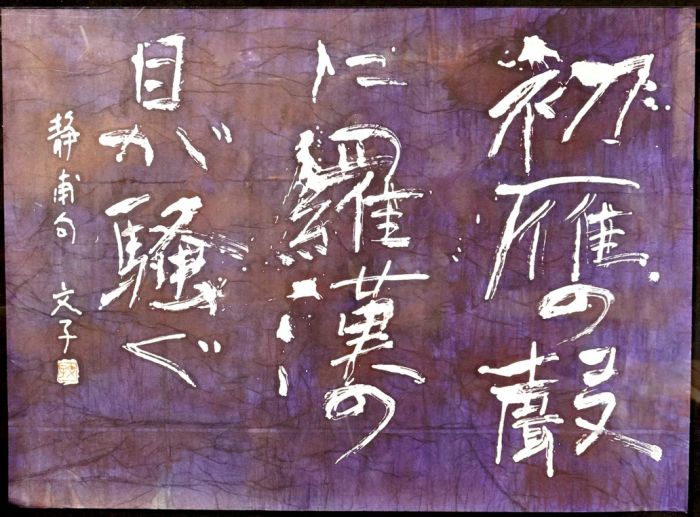 初雁の聲
に羅漢の
目が騒ぐ
静甫句 文子